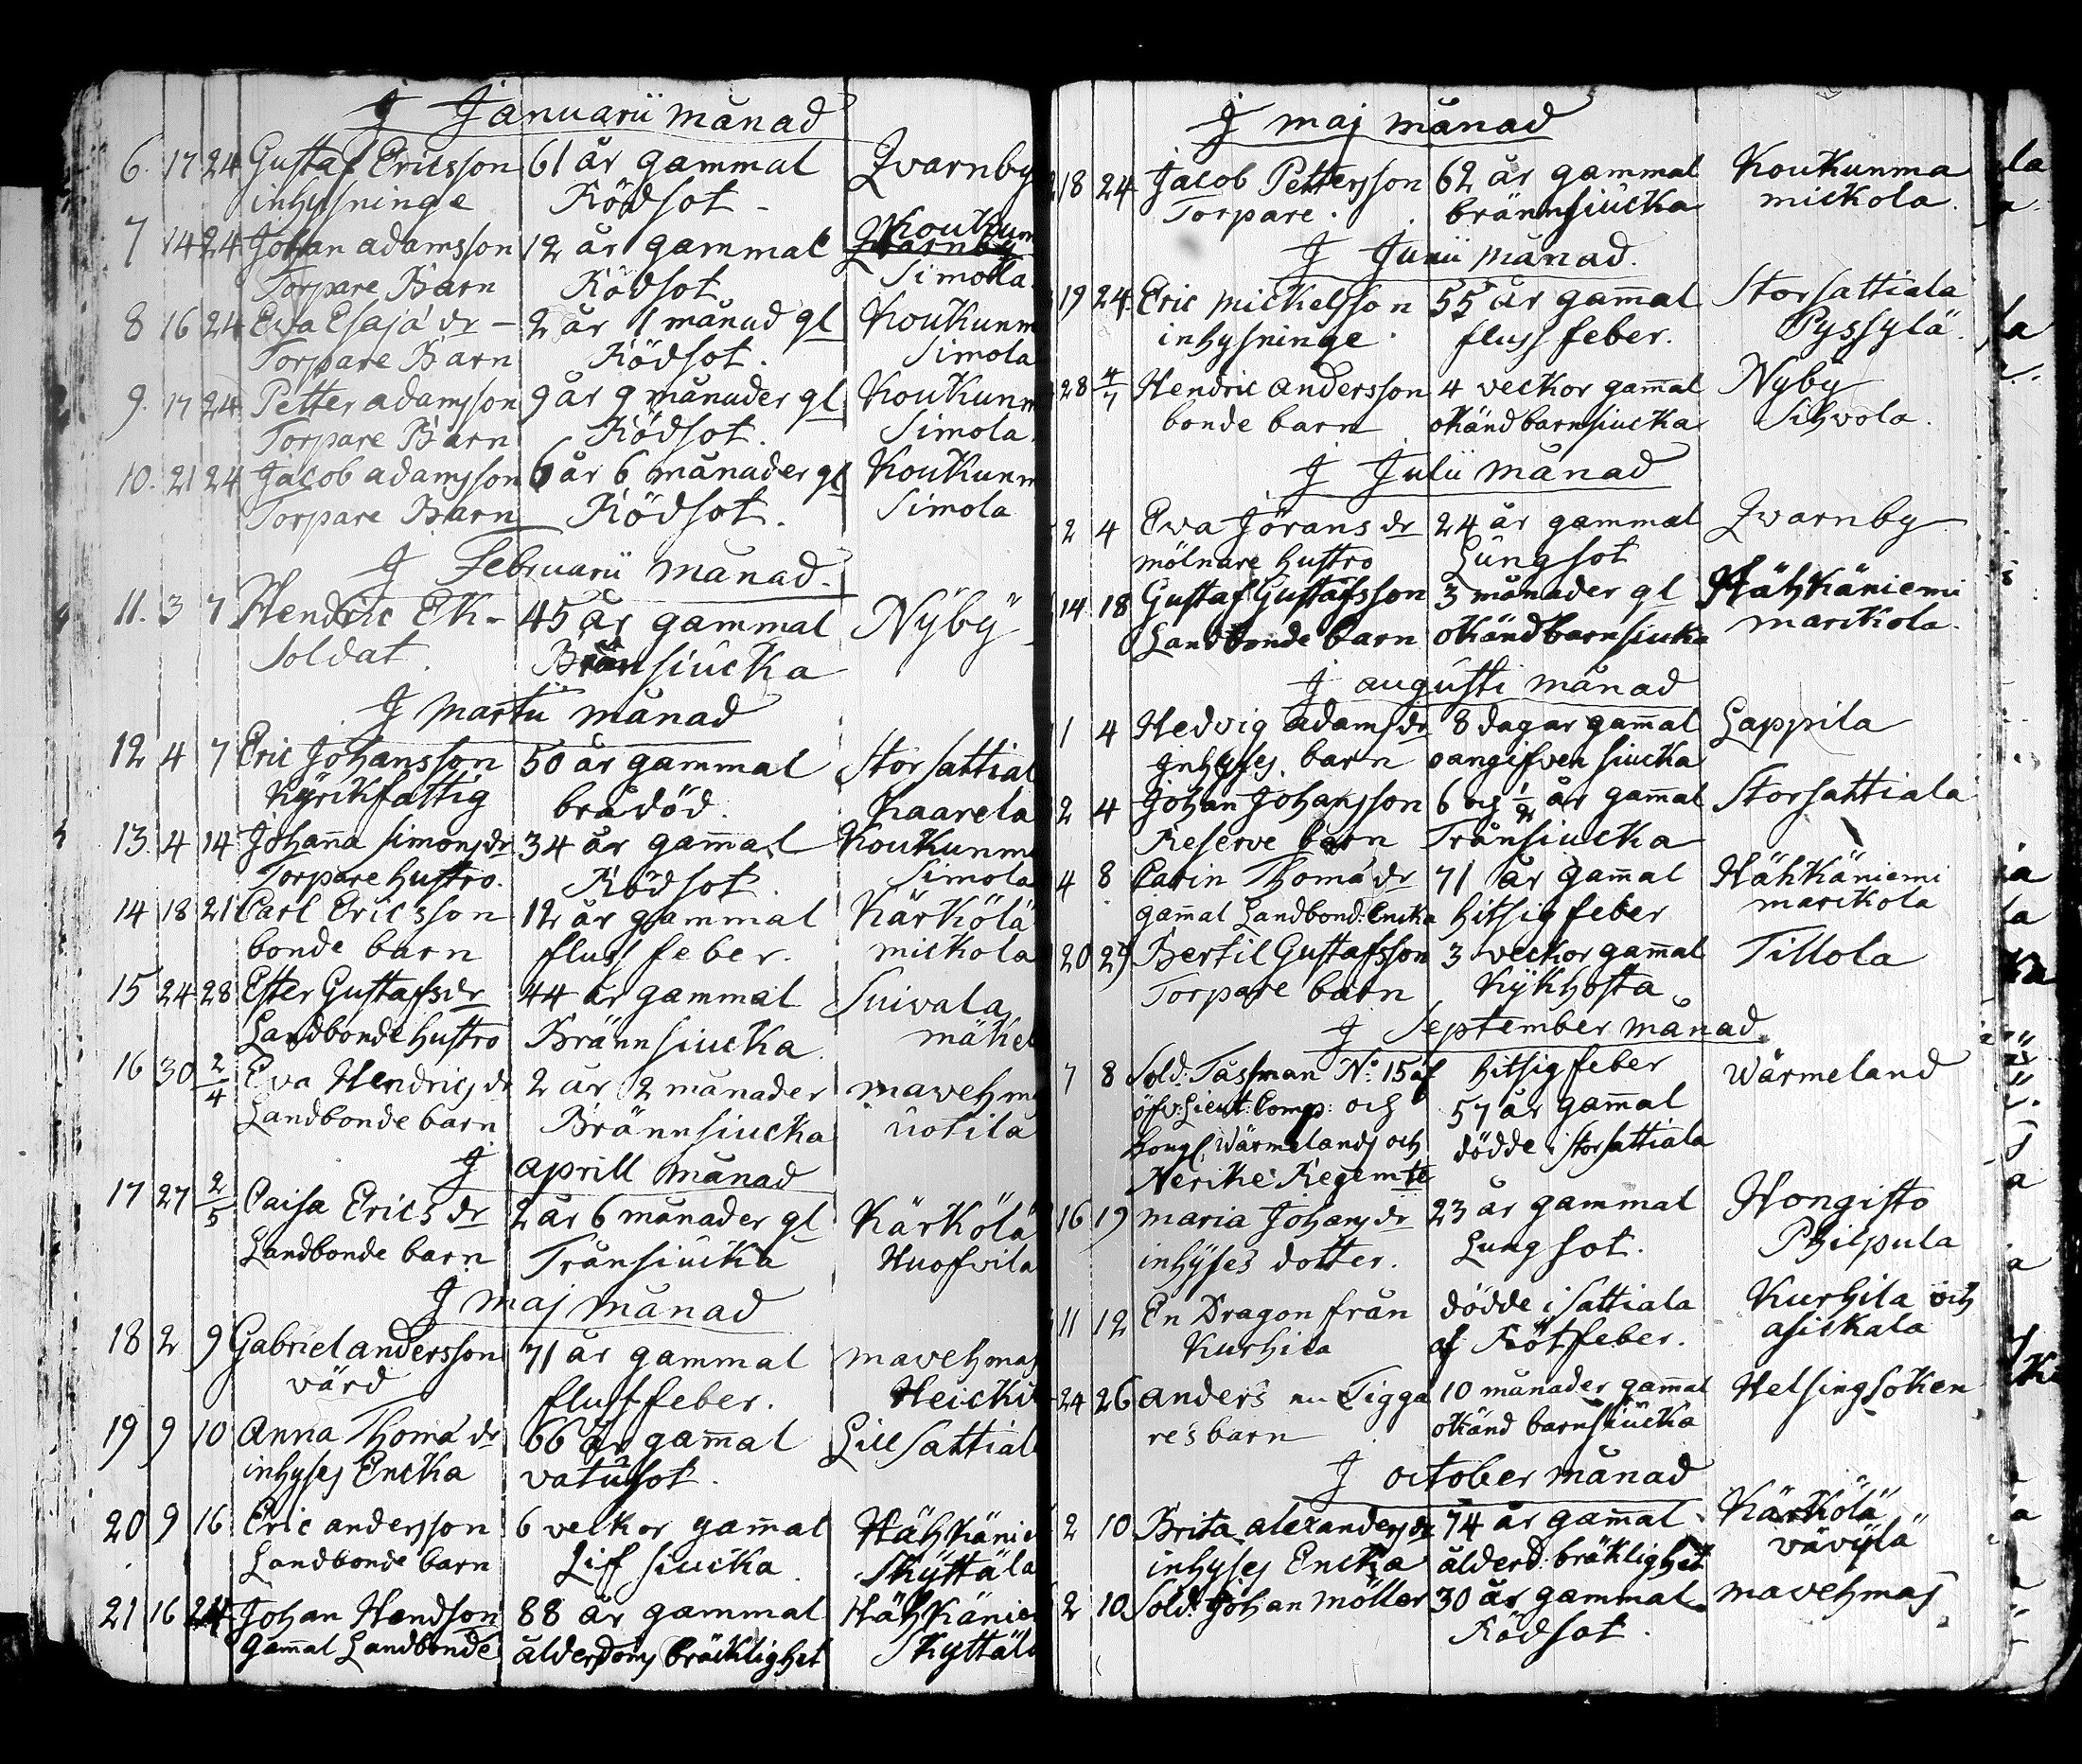 J Januarii månad
6. 17 24 Gustaf Ericsson 61 år gammal Qvarnby
inhysninge Rödsot -
7 14 24 Johan adamsson 12 år gammal Koukun
Torpare Barn Rödsot Simola.
8 16 24 Eva Esajæ dr - 2 år 1 månad gl Koukunm
Torpare Barn Rödsot. Simola
9. 17 24 Petter adamsson 9 år 9 månader gl Koukunm
Torpare Barn Rödsot. Simola.
10. 21 24 Jacob adamsson 6 år 6 månader gl Koukunm
Torpare Barn Rödsot. Simola
J Februarii månad.
11. 3 7 Hendric Ek - 45 år gammal Nÿbÿ
Soldat. Bränsiucka
J martii månad
12 4 7 Eric Johansson 50 år gammal Storsattial
Kÿrckfattig brådöd. Kaarela
13. 4 14 Johan̄a Simonsdr 34 år gam̄al Koukunma
Torpare hustro. Rödsot. Simola
14 18 21 Carl Ericsson 12 år gammal Kärkölä
bonde barn fluss feber. mickola
15 24 28 Ester Gustafsdr 44 år gammal Suivala
Landbonde hustro Brännsiucka. mäkel
16 30 2/4 Eva Hendricsdr 2 år 2 månader mavehma
Landbonde barn Brännsiucka uotila
J aprill månad
17 27 2/5 Caisa Erics dr 2 år 6 månader gl Kärkölä
Landbonde barn Trånsiucka Huofvila
J maj månad
18 2 9 Gabriel andersson 71 år gammal mavehmas
värd flussfeber. Heicki
19 9 10 Anna Thomæ dr 66 år gam̄al Lillsattial
inhyses Encka vatusot.
20 9 16 Eric andersson 6 veckor gam̄al Hähkänie
Landbonde barn Liffsiucka. Skÿttäla
21 16 24 Johan Hendson 88 år gammal Hähkänie
gam̄al Landbonde ålderdoms bräcklighet Skyttäla
J maj månad
18 24 Jacob Pettersson 62 år gammal Koukunma
Torpare. brännsiucka mickola.
J Junii månad.
19 24. Eric mickelsson 55 år gam̄al Storsattiala
inhysninge. fluss feber. Pyssylä.
28 4/7 Hendric andersson 4 veckor gam̄al Nyby
bonde barn okänd barnsiucka Sihvola.
J Julii månad
2 4 Eva Jörans dr 24 år gammal Qvarnby
mölnare hustro Lungsot
14 18 Gustaf Gustafsson 3 månader gl Hähkäniemi
Landbonde barn okänd barnsiucka marckola.
J augusti månad
1 4 Hedvig adamsdr 8 dagar gam̄al Lappila
Inhyses barn oangifven siucka
2 4 Johan Johansson 6 och 1/2 år gam̄al Storsattiala
Reserve barn Trånsiucka
4 8 Carin Thomæ dr 71 år gam̄al Hähkäniemi
gam̄al Landbond: Encka hitsig feber marckola
20 29 Bertil Gustafsson 3 veckor gam̄al Tillola
Torpare barn Kÿkhosta
J September månad
7 8 Sold: Tassman No: 15 af hitsig feber Wärmeland
öfv: Lieut: Comp: och 57 år gam̄al
Kongl. Wärmelands och dödde i Storsattiala
Nerike Regemte
16 19 maria Johansdr 23 år gammal Hongisto
inhÿses dotter. Lungsot. Philpula
11 12 En Dragon från dödde i Sattiala Kurhila och
Kurhila af Rötfeber. asickala
24 26 anders Tigga 10 månader gam̄al Helsing soken
res barn okänd barnsiucka
J october månad
2 10 Brita alexandersdr 74 år gam̄al. Kärkölä
inhyses Encka ålderd: bräklighet vävÿlä
2 10 Sold: Johan Möller 30 år gammal mavehmas
Rödsot.